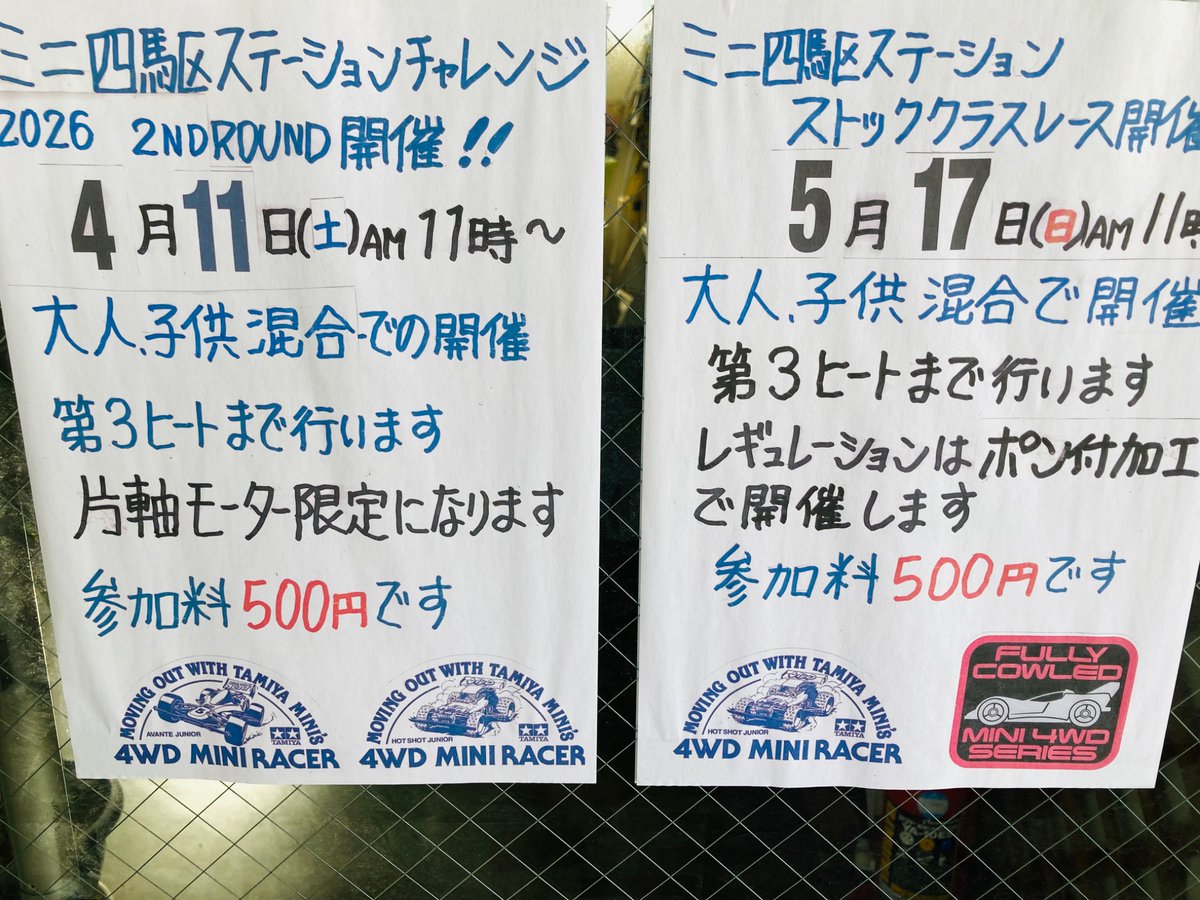 ミニ四駆区ステーションチャレンジ
2026 2NDROUND開催!!
4月11日(土)AM11時~
大人、子供混合での開催
第3ヒートまで行います
片軸モーター限定になります
参加料500円です
MOVING OUT WITH TAMIYA MINI'S
AVANTE JUNIOR
TAMIYA
4WD MINI RACER
MOVING OUT WITH TAMIYA MINI'S
HOT SHOT JUNIOR
TAMIYA
4WD MINI RACER
ミニ四駆区ステーション
ストッククラスレース開催
5月17日(日)AM11時
大人、子供混合で開催
第3ヒートまで行います
レギュレーションはポン付加工
で開催します
参加料500円です
MOVING OUT WITH TAMIYA MINI'S
HOT SHOT JUNIOR
TAMIYA
4WD MINI RACER
FULLY
COWLED
MINI 4WD
SERIES